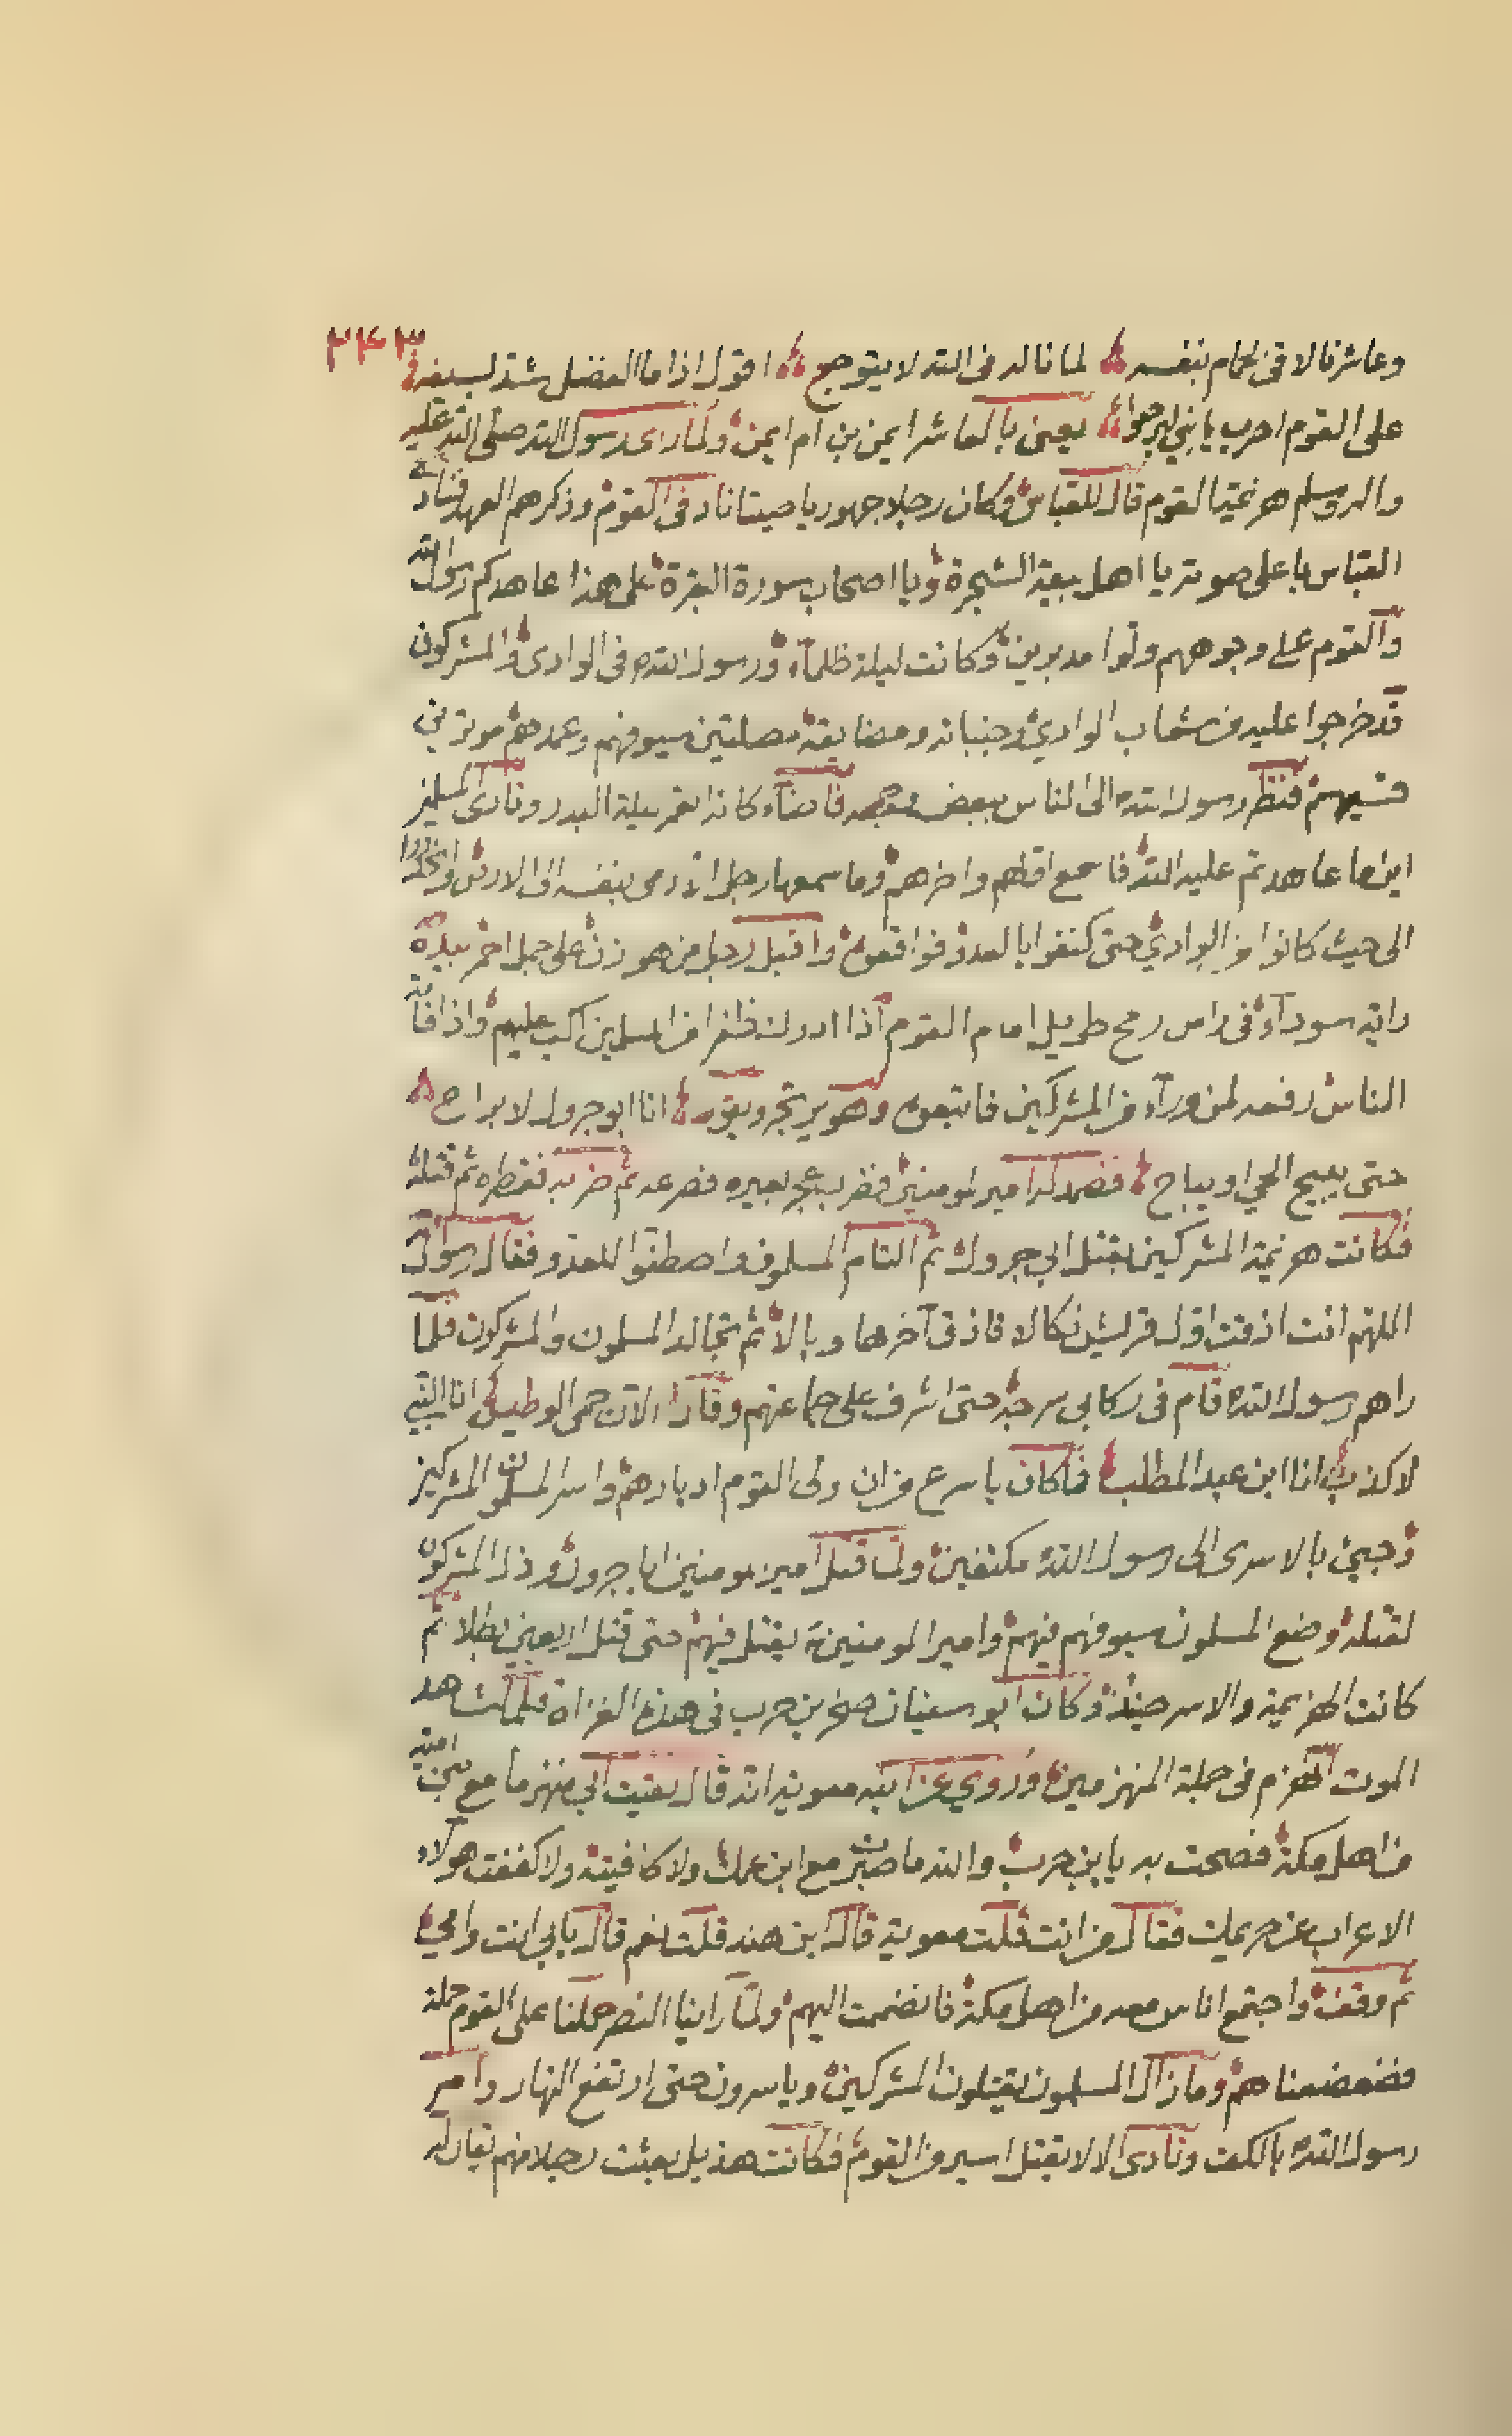 ٣٤٣
وعاشرنا لاقى الحمام بنفسه لما ناله فى الله لا يتوجع اقول اذا ما الفضل شد بسيفه
على القوم اخرى يا بني ليرجعوا يعنى بالعاشر ايمن بن ام ايمن ولما راى رسول الله صلى الله عليه
واله وسلم هزيمة القوم قال للعباس وكان رجلا جهوريا صيتا ناد فى القوم وذكرهم العهد فنادى
العباس باعلى صوته يا اهل بيعة الشجرة ويا اصحاب سورة البقرة على هذا عاهدكم رسول الله
والقوم على وجوههم ولوا مدبرين وكانت ليلة ظلماء ورسول الله فى الوادى والمشركون
قد خرجوا عليه من شعاب الوادي وجنباته ومضايقه مصلتين سيوفهم وعمدهم موترين
قسيهم فنظر رسول الله الى الناس ببعض وجهه فاضاء كانه القمر ليلة البدر ونادى المسلمين
اين ما عاهدتم عليه الله فاسمع اولهم واخرهم وما سمعها رجل الا رمى بنفسه الى الارض وانحدروا
الى حيث كانوا من الوادي حتى كنفوا بالعدو فواقعوه واقبل رجل من هوزن على جمل احمر بيده
راية سوداء فى راس رمح طويل امام القوم اذا ادرك ظفرا من المسلمين اكب عليهم واذا فاته
الناس رفعه لمن وراءه من المشركين فاتبعوه وهو يرتجز ويقول انا ابو جرول لا براح
حتى يبيح الحي او يباح فصمد له امير المومنين فضرب عجز بعيره فصرعه ثم ضربه فقطره ثم قتله
فكانت هزيمة المشركين بقتل ابي جرول ثم التام المسلمون واصطفوا للعدو فقال رسول
اللهم انت اذقت اول قريش نكالا فاذق آخرها وبالا ثم تجالد المسلمون والمشركون فلما
راهم رسول الله قام فى ركابي سرجه حتى اشرف على جماعتهم وقال الآن حمى الوطيس انا النبي
لا كذب انا ابن عبد المطلب فما كان باسرع من ان ولى القوم ادبارهم واسر المسلمون المشركين
وجيئ بالاسرى الى رسول الله مكتفين ولما قتل امير المومنين ابا جرول وذل المشركون
لقتله وضع المسلمون سيوفهم فيهم وامير المومنين يقتل فيهم حتى قتل اربعين بطلا ثم
كانت الهزيمة والاسر حينئذ وكان ابو سفيان صخر بن حرب فى هذه الغزاة فلما شاهد
الموت انهزم فى جملة المنهزمين وروي عن ابنه معوية انه قال لقيت ابي منهزما مع بني امية
من اهل مكة فصحت به يا بن حرب والله ما صبرت مع ابن عمك ولا كافيته ولا كففت هولاء
الاعراب عن حريمك فقال من انت قلت معوية قال ابن هند قلت نعم قال بابي انت وامي
ثم وقف واجتمع اناس معه من اهل مكة فانضمت اليهم ولما راينا النصر حملنا على القوم حملة
فضعضعناهم وما زال المسلمون يقتلون المشركين وياسرون حتى ارتفع النهار وامر
رسول الله بالكف ونادى الا لا يقتل اسير من القوم فكانت هذيل بعثت رجلا منهم يقال له